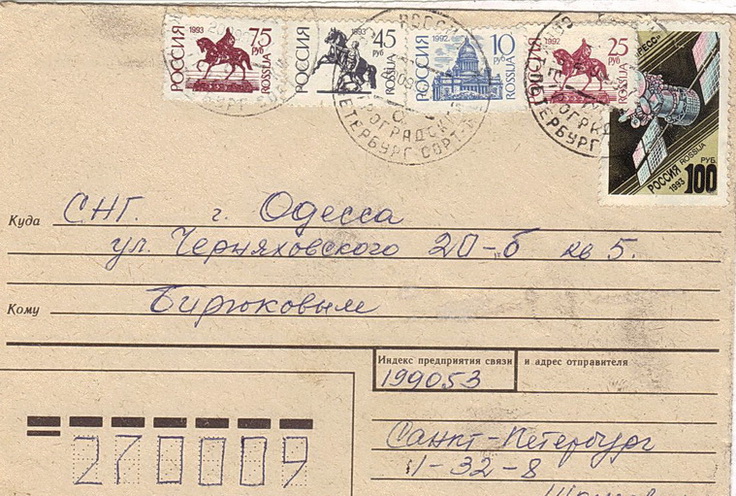 1993 75 РУБ РОССИЯ ROSSIJA
1993 45 РУБ РОССИЯ ROSSIJA
1992 10 РУБ РОССИЯ ROSSIJA
1992 25 РУБ РОССИЯ ROSSIJA
РОССИЯ ROSSIJA 1993 100 РУБ.
РОССИЯ
ПЕТЕРБУРГ СОРТ.
Куда СНГ. г. Одесса
ул. Черняховского 20-б кв 5.
Кому Бирюковым
Индекс предприятия связи и адрес отправителя
199053
Санкт-Петербург
270009